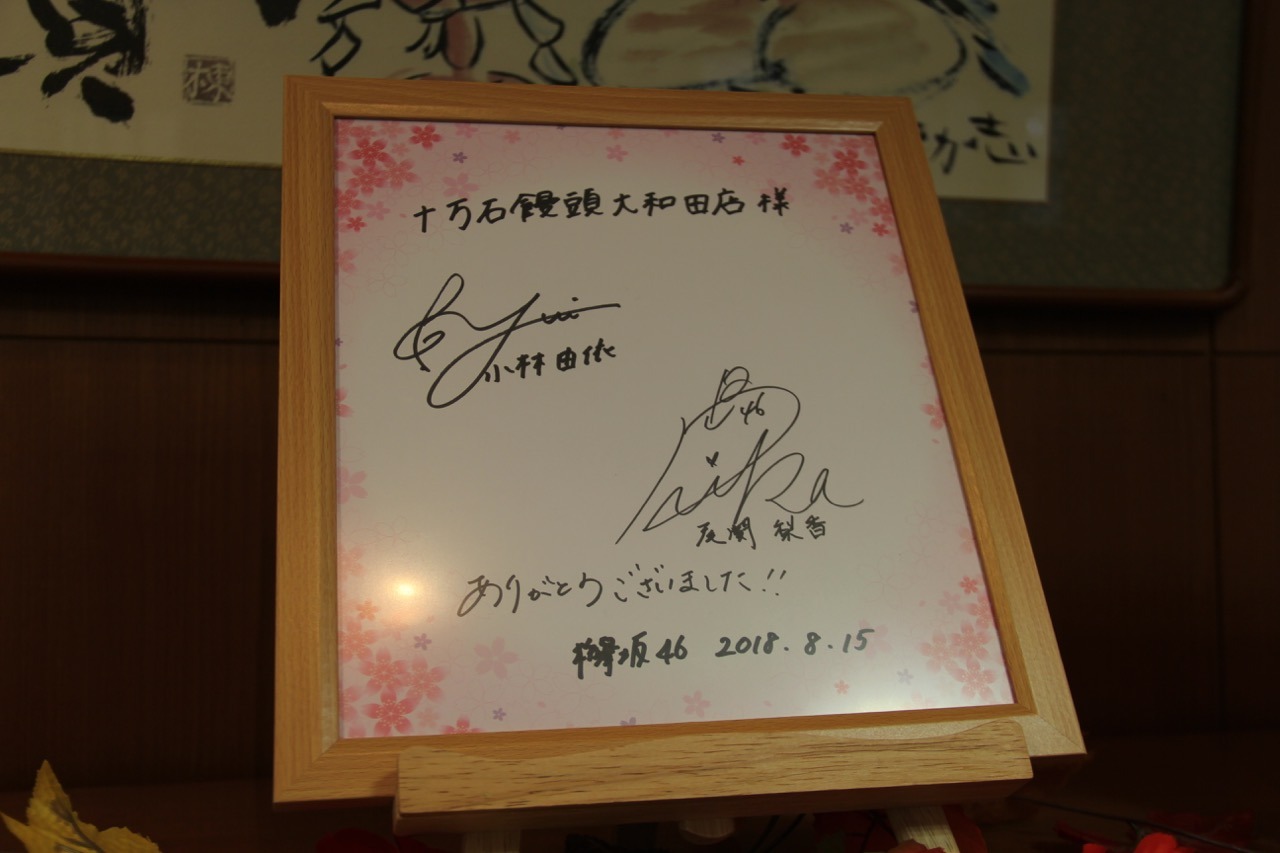 十万石饅頭大和田店様
Yui
小林由依
46
Rika
尾関 梨香
ありがとうございました!!
欅坂46 2018.8.15
志